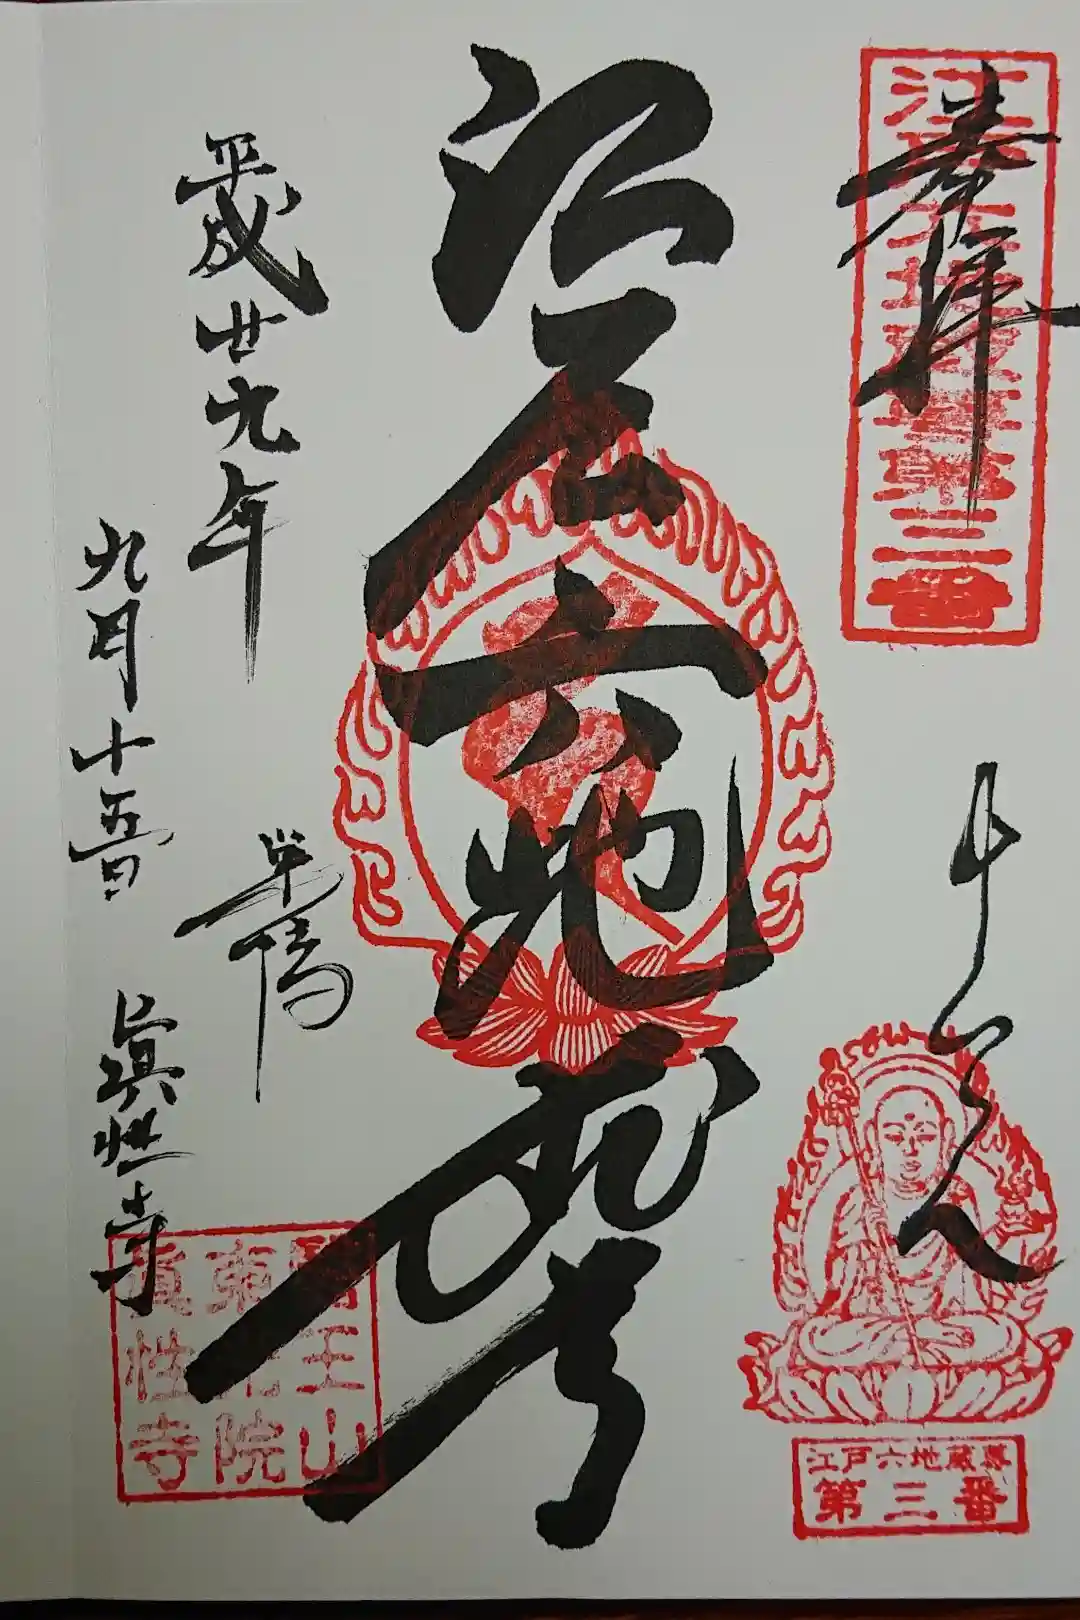 奉拝
江戸六地蔵尊第三番
すがも
江戸六地蔵尊
第三番
江戸六地蔵尊
平成廿九年
九月十五日
巣鴨
眞性寺
醫王山
東光院
眞性寺